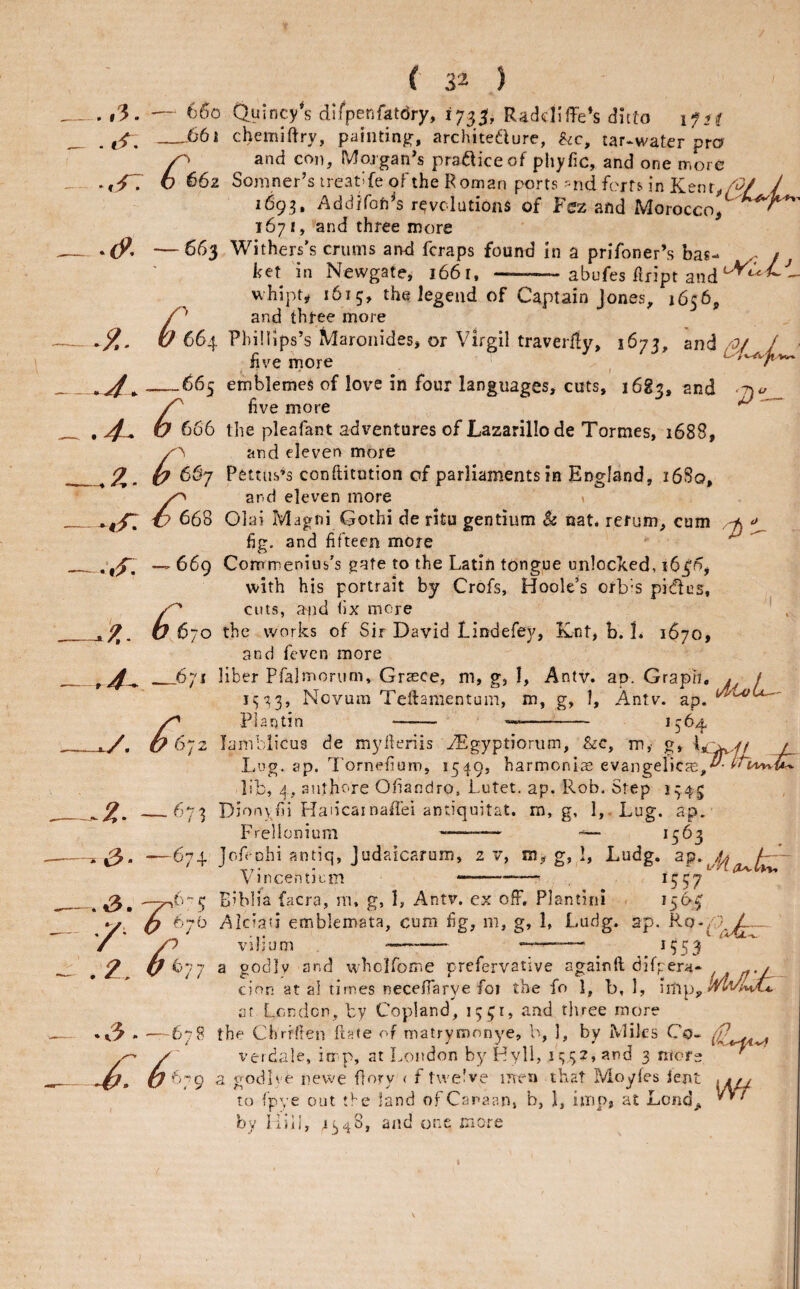 ( 32 )
.3. — 660 Quincy's difpenfatory, 1733, Radcliffe's ditto 1721
.5. —661 chemiftry, painting, architecture, &c, tar-water pro
and con, Morgan's practice of phyfic, and one more
.5. 6 662 Somner's treatife of the Roman ports and forts in Kent,
1693, Addifon's revolutions of Fez and Morocco,
1671, and three more
.9. — 663 Withers's crums and fcraps found in a prifoner's bas-
ket in Newgate, 1661, ——— abufes ftript and
whipt, 1615, the legend of Captain Jones, 1656,
and three more
.9. 6 664 Phillips's Maronides, or Virgil traverfty, 1673, and
five more
.4. —665 emblemes of love in four languages, cuts, 1683, and
five more
.4. 6 666 the pleafant adventures of Lazarillo de Tormes, 1688,
and eleven more
.2. 6 667 Pettus's conftitution of parliaments in England, 1680,
and eleven more
.5. 6 668 Olai Magni Gothi de ritu gentium & nat. rerum, cum
fig. and fifteen more
.5. — 669 Commenius's gate to the Latin tongue unlocked, 1656,
with his portrait by Crofs, Hoole's orbis pictus,
cuts, and fix more
.2. 6 670 the works of Sir David Lindefey, Knt, b. l. 1670,
and feven more
.4. —671 liber Pfalmorum, Græce, m, g, l, Antv. ap. Graph.
1533, Novum Teftamentum, m, g, l, Antv. ap.
Plantin —— ——— 1564
.1. 6 672 Iamblicus de myfteriis Ægyptiorum, &c, m, g, l,
Lug. ap. Tornefium, 1549, harmoniæ evangelicæ,
lib, 4, authore Ofiandro, Lutet. ap. Rob. Step 1545
.2. — 673 Dionyfii Halicarnaffei antiquitat. m, g, l, Lug. ap.
Frellonium ——— —— 1563
.3. —674 Jofephi antiq, Judaicarum, 2 v, m, g, l, Ludg. ap.
Vincentium ——— 1557
.3. — 675 Biblia facra, m, g, l, Antv. ex off. Plantini 1565
.7. 6 676 Alciati emblemata, cum fig, m, g, l, Ludg. ap. Ro-
villum ——— ——— 1553
.2. 6 677 a godly and wholfome prefervative againft difpera-
cion at al times neceffarye for the fo l, b, l, imp,
at London, by Copland, 1551, and three more
.3. —678 the Chriften ftate of matrymonye, b, l, by Miles Co-
verdale, imp, at London by Hyll, 1552, and 3 more
.6. 6 679 a godlye newe ftory of twelve men that Moyfes fent
to fpye out the land of Canaan, b, l, imp, at Lond,
by Hill, 1548, and one more